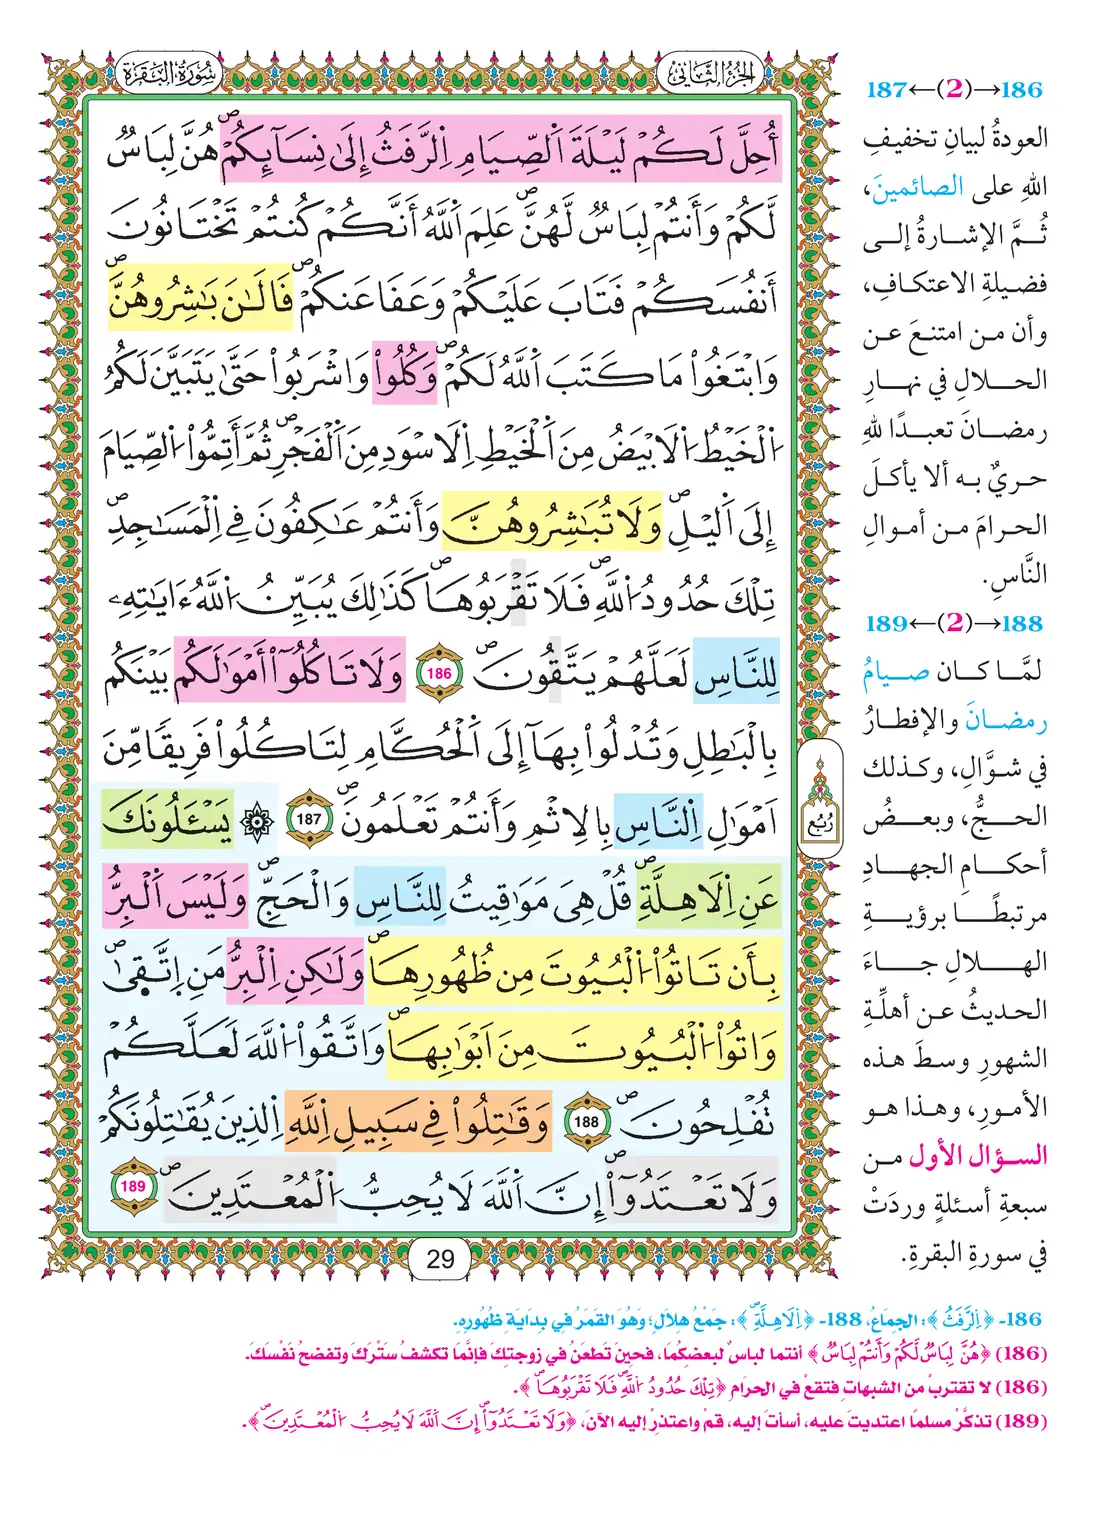 الجزء الثاني
سورة البقرة
أُحِلَّ لَكُمْ لَيْلَةَ اَلصِّيَامِ اِلرَّفَثُ إِلَىٰ نِسَآئِكُمْ هُنَّ لِبَاسٌ
لَّكُمْ وَأَنتُمْ لِبَاسٌ لَّهُنَّ عَلِمَ اَللَّهُ أَنَّكُمْ كُنتُمْ تَخْتَانُونَ
أَنفُسَكُمْ فَتَابَ عَلَيْكُمْ وَعَفَا عَنكُمْ فَالَٰنَ بَٰشِرُوهُنَّ
وَابْتَغُواْ مَا كَتَبَ اَللَّهُ لَكُمْ وَكُلُواْ وَاشْرَبُواْ حَتَّىٰ يَتَبَيَّنَ لَكُمُ
اُلْخَيْطُ اُلَابْيَضُ مِنَ اَلْخَيْطِ اِلَاسْوَدِ مِنَ اَلْفَجْرِ ثُمَّ أَتِمُّواْ اُلصِّيَامَ
إِلَى اَليْلِ وَلَا تُبَٰشِرُوهُنَّ وَأَنتُمْ عَٰكِفُونَ فِي اِلْمَسَٰجِدِ
تِلْكَ حُدُودُ اُللَّهِ فَلَا تَقْرَبُوهَا كَذَٰلِكَ يُبَيِّنُ اُللَّهُ ءَايَٰتِهِۦ
لِلنَّاسِ لَعَلَّهُمْ يَتَّقُونَ 186 وَلَا تَاكُلُوٓاْ أَمْوَٰلَكُم بَيْنَكُم
بِالْبَٰطِلِ وَتُدْلُواْ بِهَآ إِلَى اَلْحُكَّامِ لِتَاكُلُواْ فَرِيقًا مِّنَ
اَمْوَٰلِ اِلنَّاسِ بِالِاثْمِ وَأَنتُمْ تَعْلَمُونَ 187 ۞ يَسْـَٔلُونَكَ
عَنِ اِلَاهِلَّةِ قُلْ هِيَ مَوَٰقِيتُ لِلنَّاسِ وَالْحَجِّ وَلَيْسَ اَلْبِرُّ
بِأَن تَاتُواْ اُلْبُيُوتَ مِن ظُهُورِهَا وَلَٰكِنِ اِلْبِرُّ مَنِ اِتَّقَىٰ
وَاتُواْ اُلْبُيُوتَ مِنَ اَبْوَٰبِهَا وَاتَّقُواْ اُللَّهَ لَعَلَّكُمْ
تُفْلِحُونَ 188 وَقَٰتِلُواْ فِي سَبِيلِ اِللَّهِ اِلذِينَ يُقَٰتِلُونَكُمْ
وَلَا تَعْتَدُوٓاْ إِنَّ اَللَّهَ لَا يُحِبُّ اُلْمُعْتَدِينَ 189
رُبُع
29
186→(2)←187
العودةُ لبيانِ تخفيفِ
اللهِ على الصائمينَ،
ثُمَّ الإشارةُ إلى
فضيلةِ الاعتكافِ،
وأن من امتنعَ عن
الحلالِ في نهارِ
رمضانَ تعبدًا للهِ
حريٌّ به ألا يأكلَ
الحرامَ من أموالِ
النَّاسِ.
188→(2)←189
لمَّا كان صيامُ
رمضانَ والإفطارُ
في شوَّالِ، وكذلك
الحجُّ، وبعضُ
أحكامِ الجهادِ
مرتبطًا برؤيةِ
الهلالِ جاءَ
الحديثُ عن أهلَّةِ
الشهورِ وسطَ هذه
الأمورِ، وهذا هو
السؤال الأول من
سبعةِ أسئلةٍ وردَتْ
في سورةِ البقرةِ.
186- ﴿اِلرَّفَثُ﴾: الجِمَاعُ، 188- ﴿اِلَاهِلَّةِ﴾: جَمْعُ هِلَالٍ؛ وَهُوَ القَمَرُ فِي بِدَايَةِ ظُهُورِهِ.
(186) ﴿هُنَّ لِبَاسٌ لَّكُمْ وَأَنتُمْ لِبَاسٌ﴾ أنتما لباسٌ لبعضِكُمَا، فحينَ تَطعنُ في زوجتِكَ فإنَّمَا تكشفُ سَتْرَكَ وتفضحُ نَفْسَكَ.
(186) لا تقتربْ من الشبهاتِ فتقعَ في الحرَامِ ﴿تِلْكَ حُدُودُ اُللَّهِ فَلَا تَقْرَبُوهَا﴾.
(189) تذكَّرْ مسلمًا اعتديتَ عليه، أسأتَ إليه، قمْ واعتذرْ إليه الآنَ، ﴿وَلَا تَعْتَدُوٓاْ إِنَّ اَللَّهَ لَا يُحِبُّ اُلْمُعْتَدِينَ﴾.